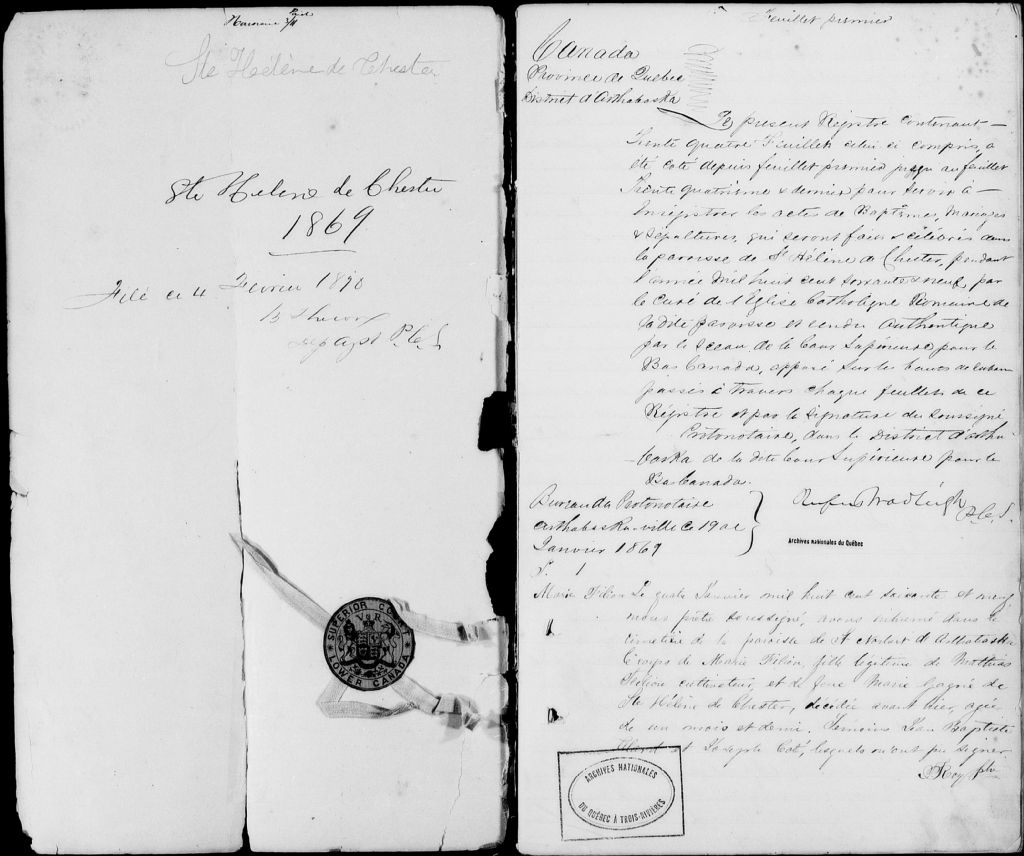 Ste Hélène de Chester
Ste Helene de Chester
1869
Filé ce 4 Fevrier 1870
Dep P.C.S
SUPERIOR COURT
V R
LOWER CANADA
Feuillet premier
Canada
Province de Quebec
District d'Arthabaska
Le present Régistre contenant
trente quatre feuillets celui ci compris, a
été coté depuis feuillet premier jusqu au feuillet
trente quatrieme & dernier pour servir à
Enrégistrer les actes de Baptême, Mariages
& Sépultures, qui seront faits & célébrés dans
la paroisse de St Hélène de Chester, pendant
l'année mil huit cent soixante & neuf, par
le Curé de l'Eglise Catholique Romaine de
la dite paroisse et rendu authentique
par le Sceau de la Cour Supérieure pour le
Bas Canada, apposé sur les bouts de ruban
passés à travers chaque feuillets de ce
Régistre et par la Signature du Soussigné
Protonotaire, dans le District d'Artha-
baska de la dite Cour Supérieure pour le
Bas Canada.
Bureau du Protonotaire
Arthabaska-ville ce 19
Janvier 1869
P.C.S.
Archives nationales du Québec
S. 1
Marie Filion Le quatre Janvier mil huit cent soixante et neuf
nous prêtre soussigné, avons inhumé dans le
cimetière de la paroisse de St Norbert d'Arthabaska
le corps de Marie Filion, fille légitime de Mathias
Filion cultivateur, et de feue Marie Gagné de
Ste Hélène de Chester, décédée avant hier, agée
de un mois et demi. Temoins Jean Baptiste
et Joseph Coté, lesquels n'ont pu signer
Roy ptre
ARCHIVES NATIONALES
DU QUÉBEC À TROIS-RIVIÈRES